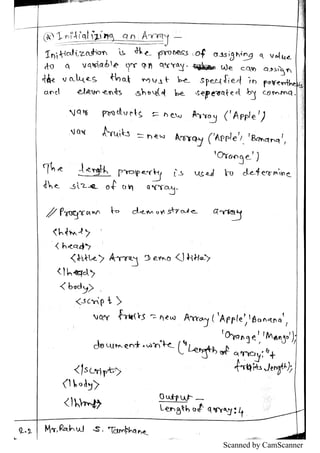 (*) Initializing an Array —
Initialization is the process of assigning a value
to a variable or an array. We can assign
the values that must be specified in parenthesis
and elements should be seperated by comma.
var products = new Array ('Apple')
var fruits = new Array ('Apple', 'Banana',
'Orange')
The length property is used to determine
the size of an array.
// Program to demonstrate array
<html>
<head>
<title> Array Demo </title>
</head>
<body>
<script>
var fruits = new Array ('Apple', 'Banana',
'Orange', 'Mango');
document.write ("Length of array:"+
fruits.length);
</script>
</body>
</html>
Output —
Length of array: 4
2.2 Mr. Rahul S. Tamkhane
Scanned by CamScanner